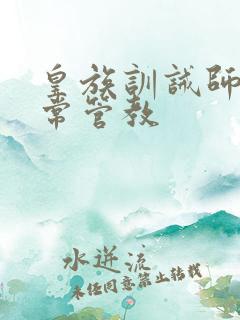 皇族訓誡師
常管教
水逆流
未经同意禁止转载